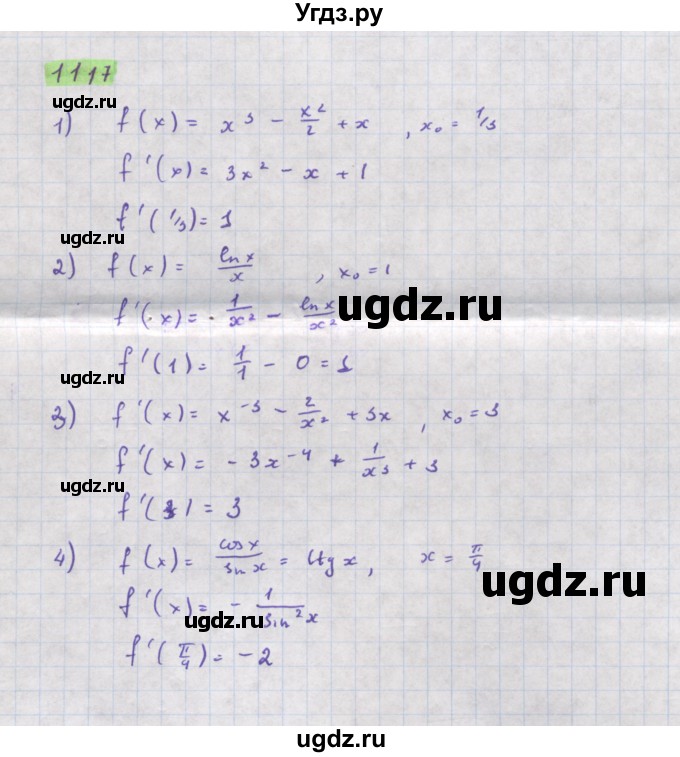 Угдз.ру
1117
ugdz.ru
1) f(x) = x³ - x²/2 + x , x₀ = 1/3
f'(x) = 3x² - x + 1
f'(1/3) = 1
ugdz.ru
2) f(x) = ln x/x , x₀ = 1
f'(x) = 1/x² - ln x/x²
ugdz.ru
f'(1) = 1/1 - 0 = 1
ugdz.ru
3) f'(x) = x⁻³ - 2/x² + 3x , x₀ = 3
f'(x) = -3x⁻⁴ + 1/x³ + 3
ugdz.ru
f'( ) = 3
4) f(x) = cos x/sin x = ctg x, x = π/4
ugdz.ru
f'(x) = - 1/sin²x
ugdz.ru
f'(π/4) = -2
ugdz.ru